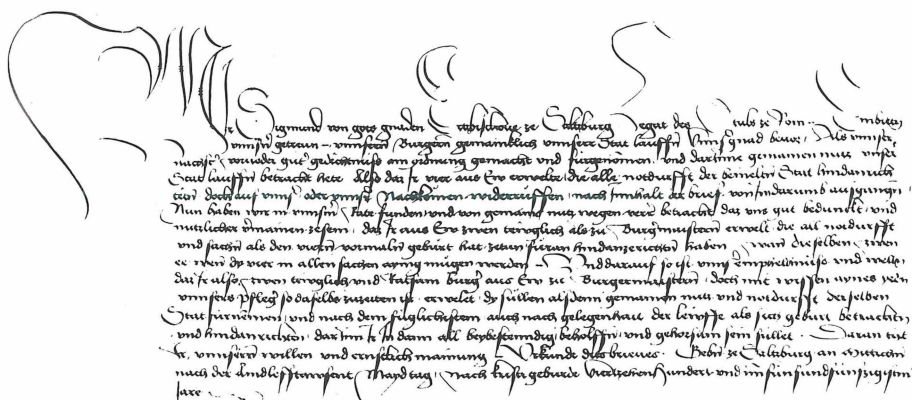 Wir Sigmund von gots gnaden Ertzbischove ze Saltzburg Legat des Stuls ze Rom. Embieten
unnsern getrewn unnsern Burgern gemainklich unnserr Stat Lauffen unnser gnad bevor. Als unnser
nachster vorvoder gut gedechtnüss ain ordnung gemacht und fürgenomen, und darinne gemainen nutz unser
Stat Lauffen betracht hete Also daz Ir vier aus Ew erwelte, die alle notdurfft der benelten Stat hindanrich
teten doch auf unnser oder unnser Nachkomen widerruffen, nach Innhalt der brief von Im darumb ausgangen
Nun haben wir in unnserm Rate funden und von gemains nutz wegen verrer betracht daz uns gut bedunckt, und
nutzlicher ze sein, daz Ir aus Ew zwen terwglich als zu Burgermaistern erwelt, die all notdurfft
und sachen als den viern vormaln gebürt hat zetun füran hindanzerichten haben wann dieselben zwen
ee wenn dy vier in allen sachen aynig mügen werden Und darauf so ist unnser emphelhnüss und wellen
daz Ir also zwen terwglich und Ratsam burger aus Ew zu Burgermaistern, doch mit wissen aynes yeden
unnsers Pfleger so daselbs zuzeiten ist, erwelet, dy süllen alsdenn gemainen nutz und notdurfft derselben
Stat fürnemen, und nach dem füglichisten auch nach gelegenhait der lewffe als sich gebürt betrachten
und hindanrichten, darinn Ir In dann all beybestenndig beholffen, und gehorsam sein süllet. Daran tut
Ir, unnsern willen und ernstlich mainung Urkunde ditz brieves. Geben ze Saltzburg an Mitichen
nach der Andlefftawsent Maydtag, Nach kristi geburde Vierzehenhundert und im fünfundfünfzigistem
Jare